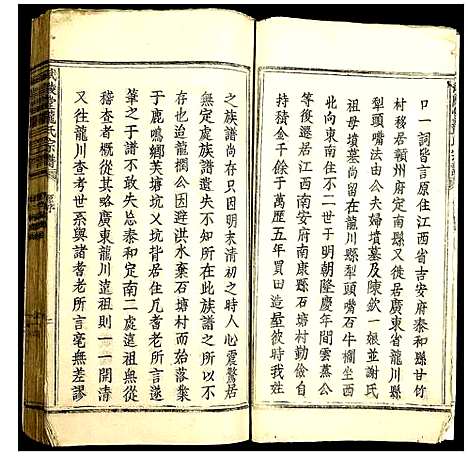 口一詞皆言原住江西省吉安府泰和縣甘竹
村移居贛州府定南縣又徙居廣東省龍川縣
犁頭嘴法由公夫婦墳墓及陳歆一娘並謝氏
祖母墳墓尚留在龍川縣犁頭嘴石牛欄坐西
北向東南住不二世于明朝隆慶年間雲慕公
等後遷居江西南安府南康縣石塘村勤儉自
持積金千餘于萬歷五年買田造屋彼時我
之族譜尚存只因明末清初之時人心震驚居
無定處族譜遺失不知有此族譜之所以不
存也迨龍潤公因避洪水棄石塘村而落葉
于鹿鳴鄉芙塘坑又坑背居住凡耆老所言遂
筆之于譜不敢失忘泰和定南二處遠祖無從
稽查者概從其略廣東龍川遠祖則一一開清
又往龍川查考世系與諸耆老所言毫無差謬
武陵堂龍氏宗譜